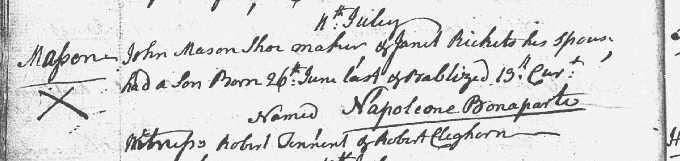 11th July
Mason John Mason Shoe maker & Janet Rickets his Spouse
had a Son Born 26th June last & Babtized 13th Curt
Named Napoleone Bonaparte
Witness Robert Tennent & Robert Cleghorn